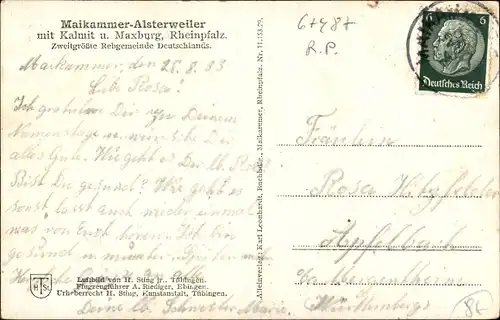 Maikammer-Alsterweiler
mit Kalmit u. Maxburg, Rheinpfalz.
Zweitgrößte Rebgemeinde Deutschlands.
Maikammer, den 28.8.33
Liebe Rosa!
Ich gratuliere Dir zu Deinem
Namenstage u. wünsche Dir
alles Gute. Wie geht es Dir lb. Rosa?
Bist Du gesund? Wie geht es
sonst, lasst auch wieder einmal
was von Euch hören. Ich bin
gesund u. munter
Herzliche
Deine lb. Schwester Marie.
Luftbild von H. Sting jr., Tübingen.
Flugzeugführer A. Riediger, Ebingen.
Urheberrecht H. Sting, Kunstanstalt, Tübingen.
H St
Alleinverlag: Karl Leonhardt, Buchhdlg., Maikammer, Rheinpfalz. Nr. 11,153.29.
67487
R.P.
6 6
Deutsches Reich
Fräulein
Rosa
Apfelbach
b/Mergentheim
Württemberg
8€